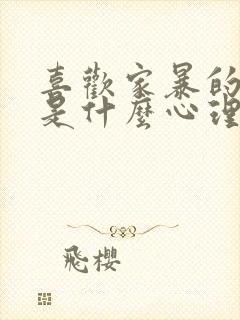 喜歡家暴的
是什麼心理
飛櫻